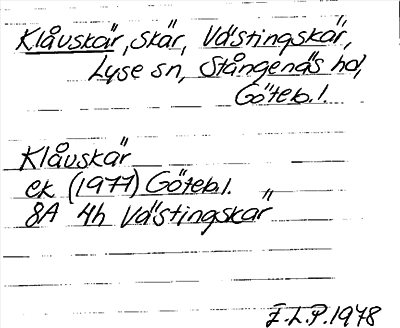 Klåvskär, skär, Västingskär,
Lyse sn, Stångenäs hd,
Göteb.l.
Klåvskär
ek (1977) Göteb.l.
8A 4h Västingskär
E.L.P. 1978